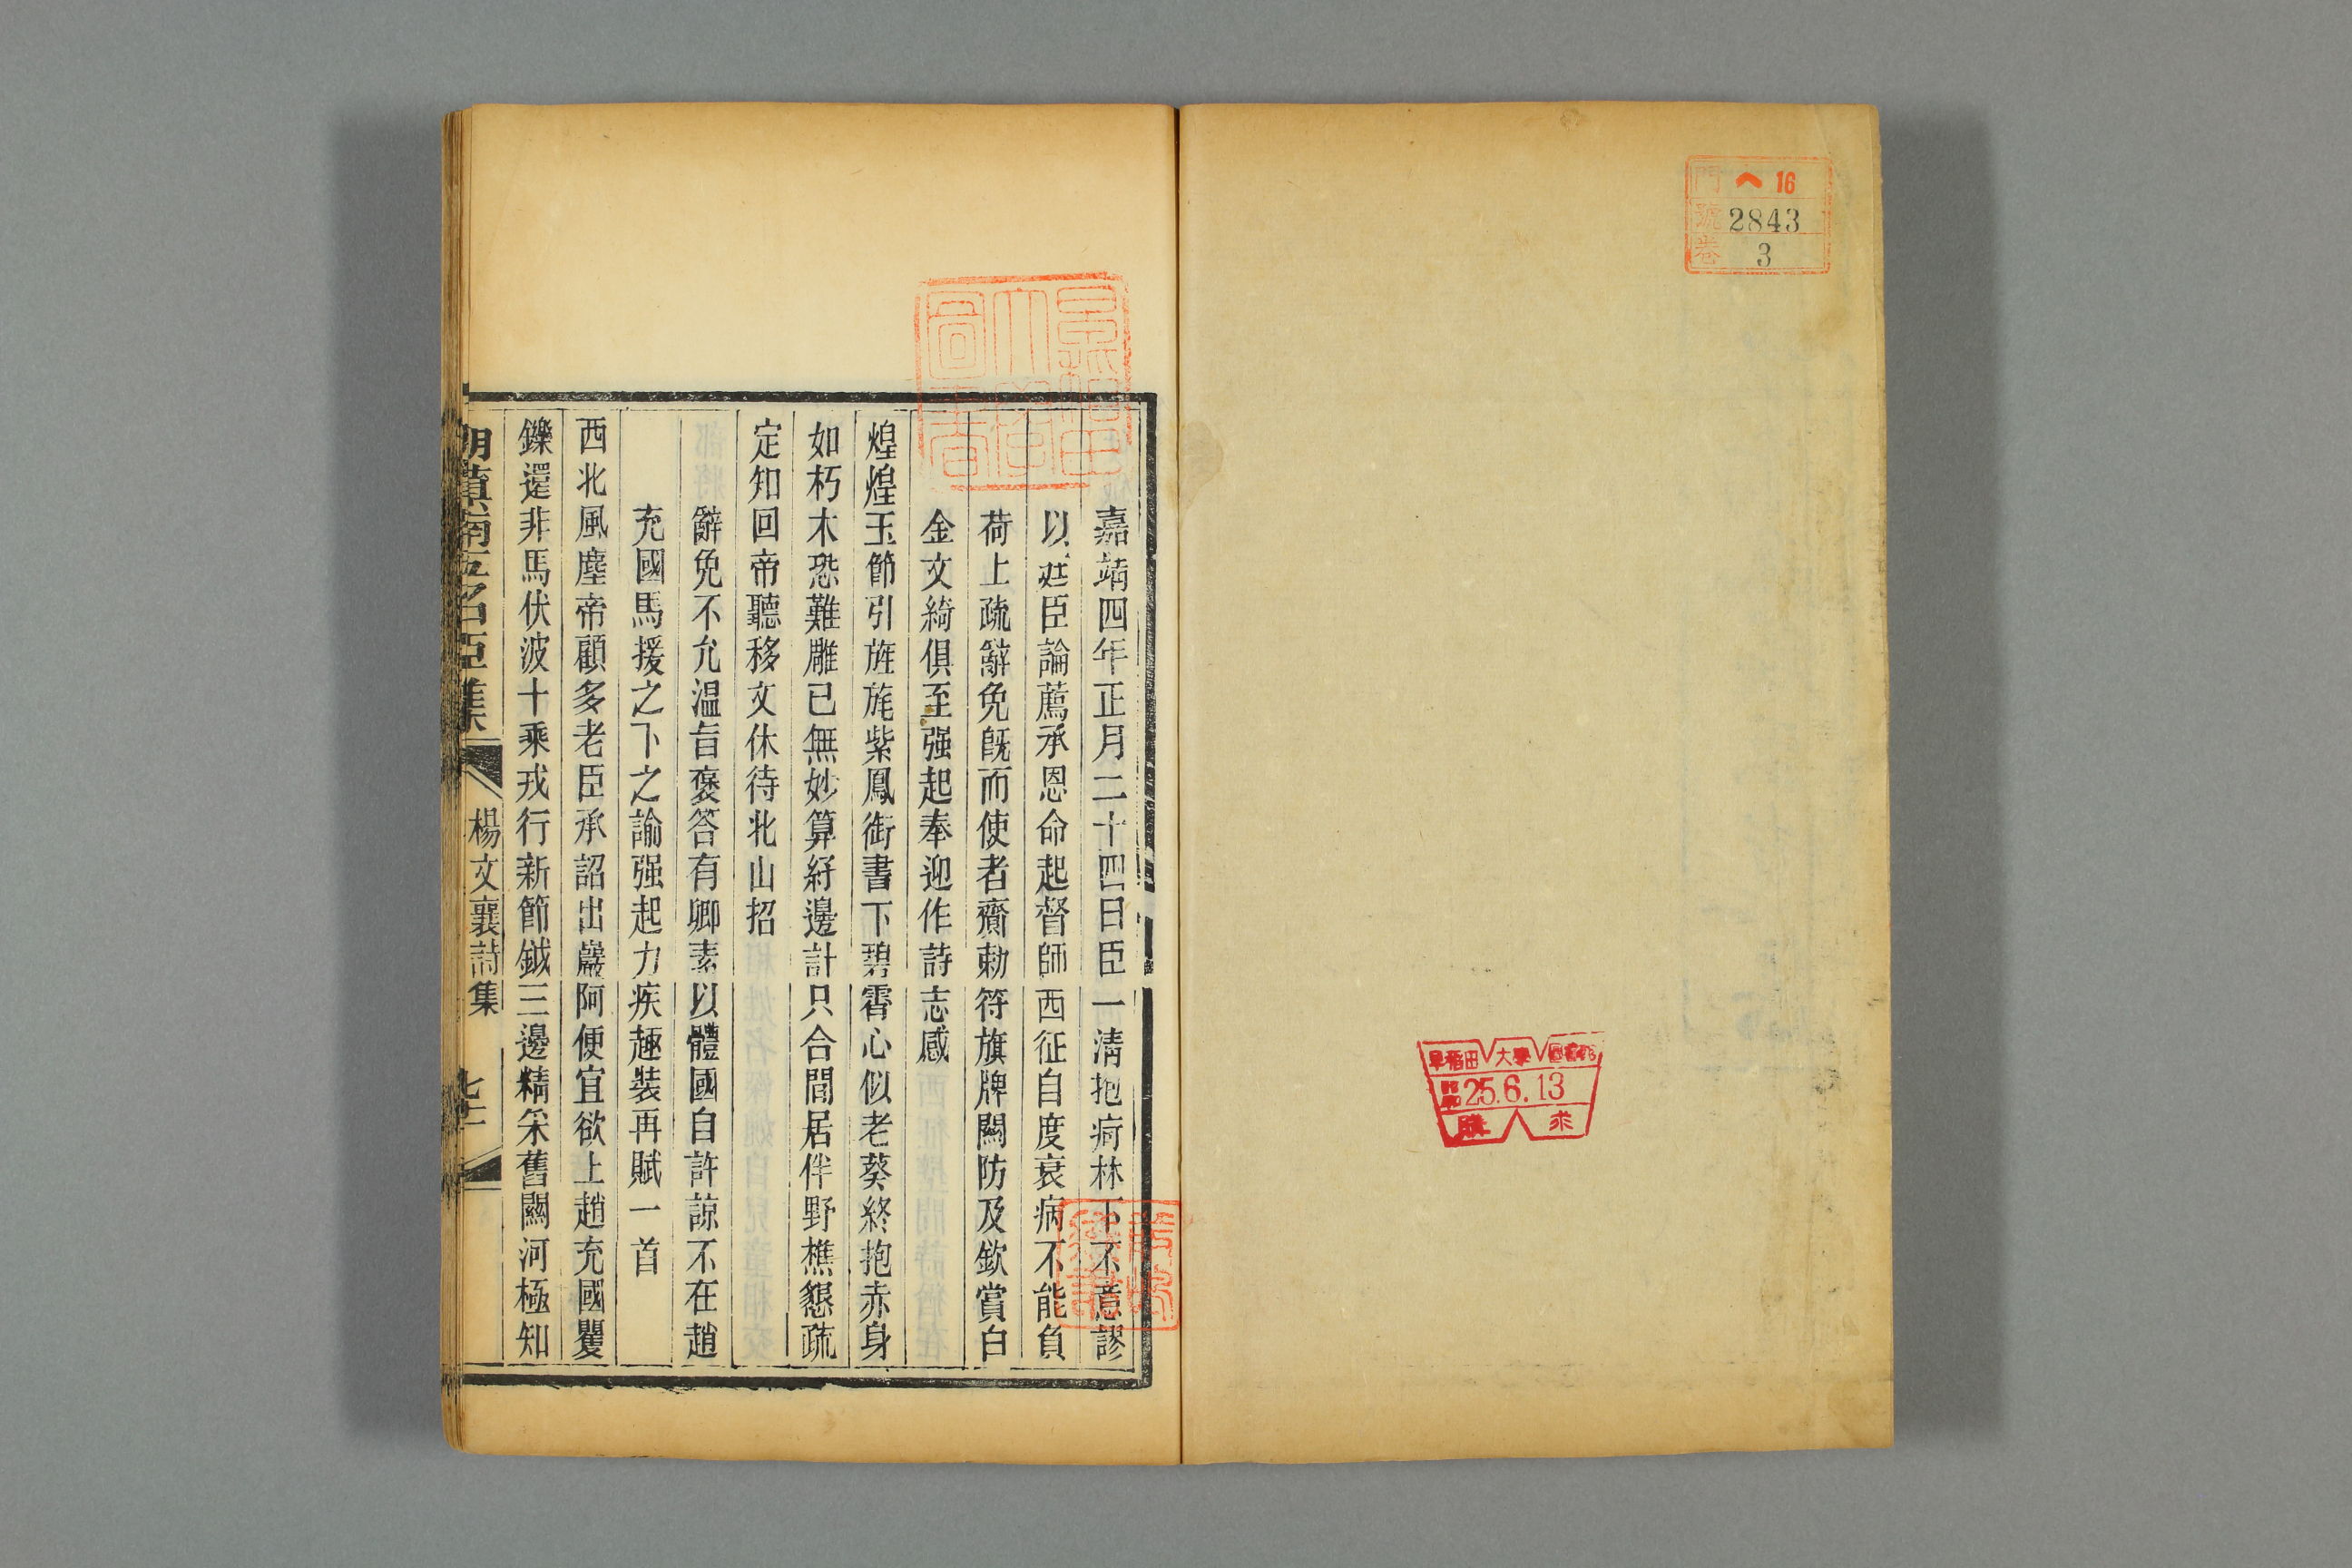 門 へ 16
號 2843
卷 3
早稻田大學圖書館
昭和25.6.13
購求
嘉靖四年正月二十四日臣一清抱痾林下不意謬
以廷臣論薦承恩命起督師西征自度衰病不能負
荷上疏辭免旣而使者齎勅符旗牌關防及欽賞白
金文綺俱至强起奉迎作詩志感
煌煌玉節引旌旄紫鳳銜書下碧霄心似老葵終抱赤身
如朽木恐難雕已無妙算紓邊計只合閒居伴野樵懇疏
定知回帝聽移文休待北山招
辭免不允温旨褒答有卿素以體國自許諒不在趙
充國馬援之下之諭强起力疾趣裝再賦一首
西北風塵帝顧多老臣承詔出巖阿便宜欲上趙充國矍
鑠還非馬伏波十乘戎行新節鉞三邊精采舊關河極知
明滇南五名臣集
楊文襄詩集